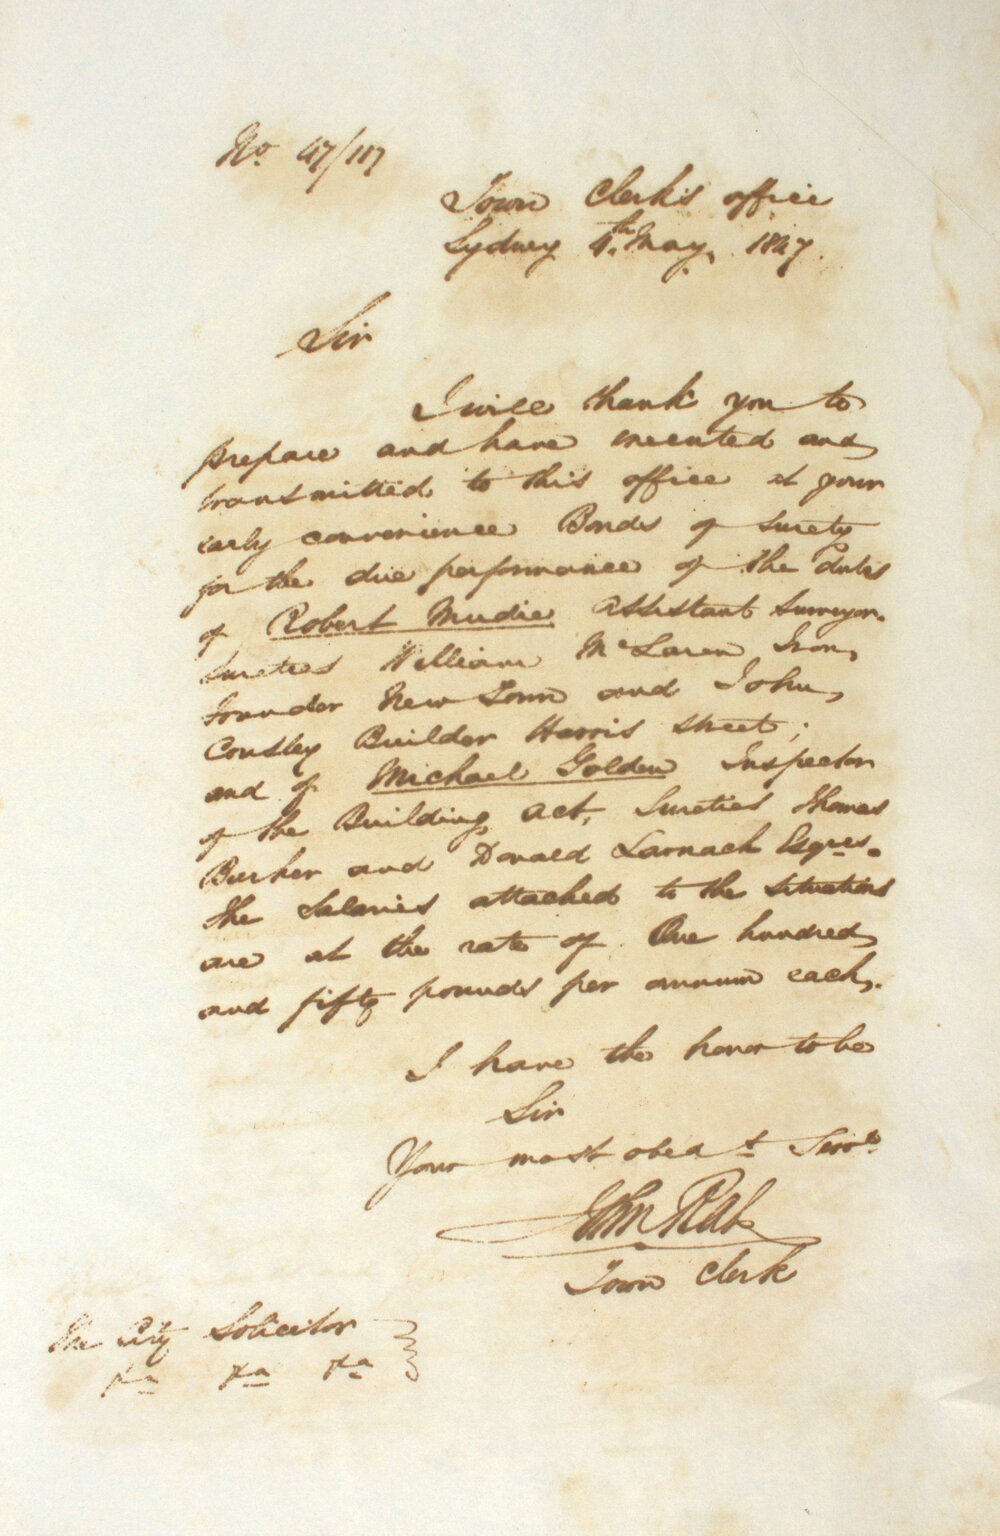 No. 47/117
Town Clerk's office
Sydney 4th May, 1847.
Sir
I will thank you to
prepare and have executed and
transmitted to this office at your
early convenience Bonds of surety
for the due performance of the duties
of Robert Mudie Assistant Surveyor.
Sureties William McLaren Iron
founder New Town and John
Cousley Builder Harris street;
and of Michael Golden Inspector
of the Building Act, Sureties Thomas
Burker and Donald Larnach Esqres.
The Salaries attached to the situations
are at the rate of One hundred
and fifty pounds per annum each.
I have the honor to be
Sir
Your most obedt Servt
John Rae
Town Clerk
The City Solicitor
&a &a &a